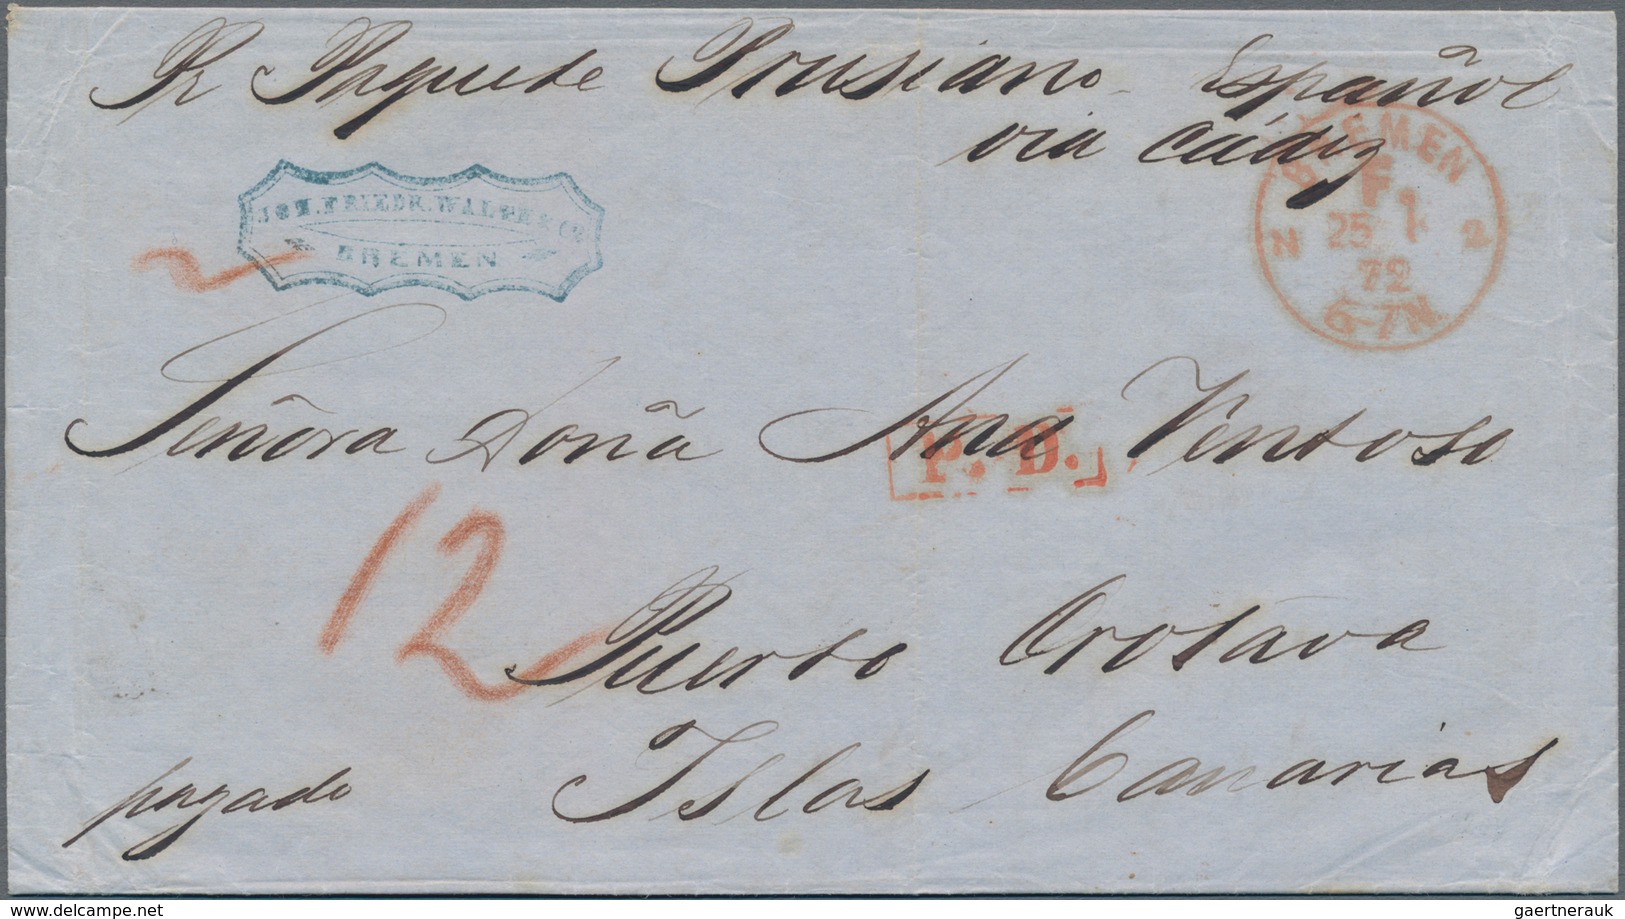 Pr Paquete Prusiano Español
via Cádiz
BREMEN
F.
25 1
N 2
72
6-7N.
JOH. FRIEDR. WALTE & Co
BREMEN
Señora Doña Ana Ventoso
P. D.
12
Puerto Orotava
pagado
Islas Canarias
www.delcampe.net
gaertnerauk